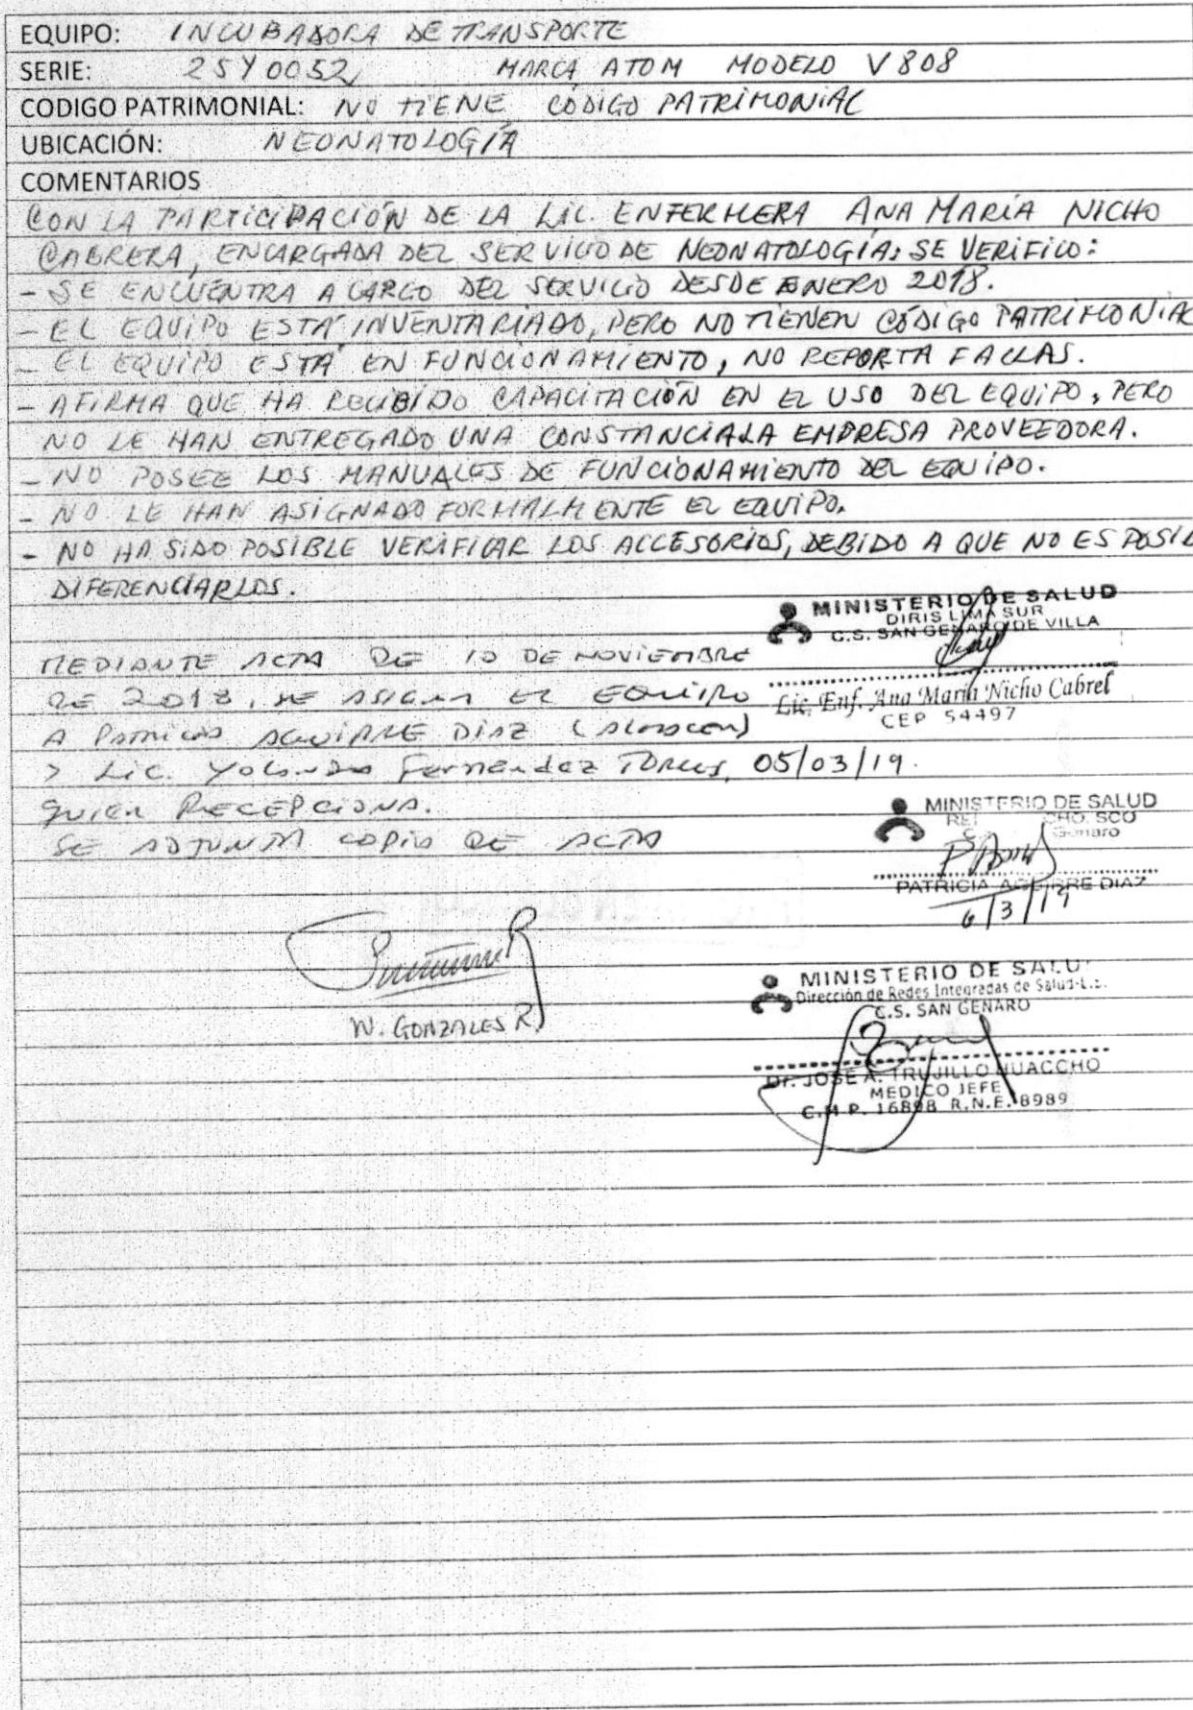 EQUIPO: INCUBADORA DE TRANSPORTE
SERIE: 25Y0052, MARCA ATOM MODELO V808
CODIGO PATRIMONIAL: NO TIENE CÓDIGO PATRIMONIAL
UBICACIÓN: NEONATOLOGÍA
COMENTARIOS
CON LA PARTICIPACIÓN DE LA LIC. ENFERMERA ANA MARÍA NICHO
CABRERA, ENCARGADA DEL SERVICIO DE NEONATOLOGÍA: SE VERIFICO:
- SE ENCUENTRA A CARGO DEL SERVICIO DESDE ENERO 2018.
- EL EQUIPO ESTÁ INVENTARIADO, PERO NO TIENEN CÓDIGO PATRIMONIAL
- EL EQUIPO ESTÁ EN FUNCIONAMIENTO, NO REPORTA FALLAS.
- AFIRMA QUE HA RECIBIDO CAPACITACIÓN EN EL USO DEL EQUIPO, PERO
NO LE HAN ENTREGADO UNA CONSTANCIA LA EMPRESA PROVEEDORA.
- NO POSEE LOS MANUALES DE FUNCIONAMIENTO DEL EQUIPO.
- NO LE HAN ASIGNADO FORMALMENTE EL EQUIPO.
- NO HA SIDO POSIBLE VERIFICAR LOS ACCESORIOS, DEBIDO A QUE NO ES POSIBL
DIFERENCIARLOS.
MINISTERIO DE SALUD
DIRIS LIMA SUR
C.S. SAN GENARO DE VILLA
Lic. Enf. Ana María Nicho Cabrel
CEP 54497
MEDIANTE ACTA DE 10 DE NOVIEMBRE
DE 2018, SE ASIGNA EL EQUIPO
A Patricia AGUIRRE DÍAZ (Almacen)
> Lic. Yolanda Fernandez Torres, 05/03/19.
QUIEN RECEPCIONA.
SE ADJUNTA COPIA DE ACTA
MINISTERIO DE SALUD
CHO. SCO
Genaro
PATRICIA AGUIRRE DIAZ
6/3/19
W. GONZALES R.
MINISTERIO DE SALU
Dirección de Redes Integradas de Salud-L.S.
C.S. SAN GENARO
Dr. JOSE A. TRUJILLO HUACCHO
MEDICO JEFE
C.M.P. 16898 R.N.E. 8989